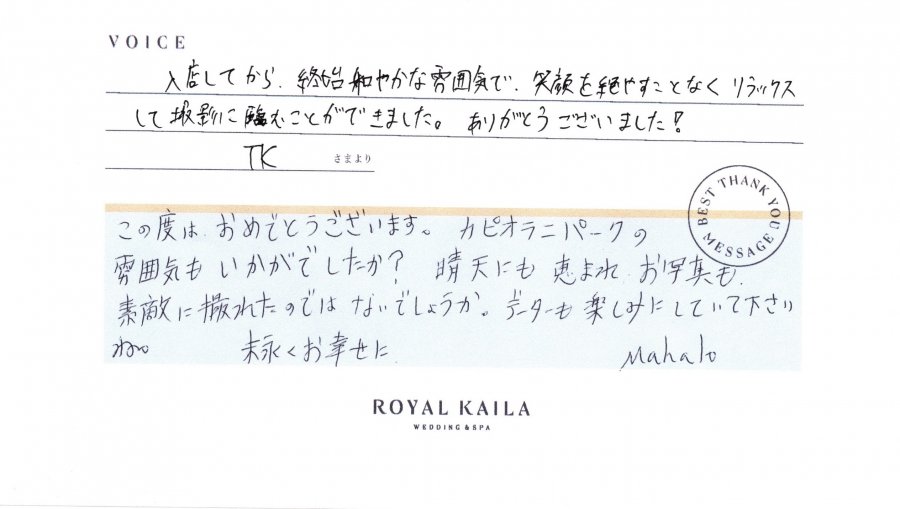 VOICE
入店してから、終始和やかな雰囲気で、笑顔を絶やすことなくリラックス
して撮影に臨むことができました。ありがとうございました！
TK さまより
BEST THANK YOU MESSAGE
この度は、おめでとうございます。カピオラニパークの
雰囲気もいかがでしたか？晴天にも恵まれ、お写真も
素敵に撮れたのではないでしょうか。データーも楽しみにしていて下さい
ね。末永くお幸せに Mahalo
ROYAL KAILA
WEDDING & SPA